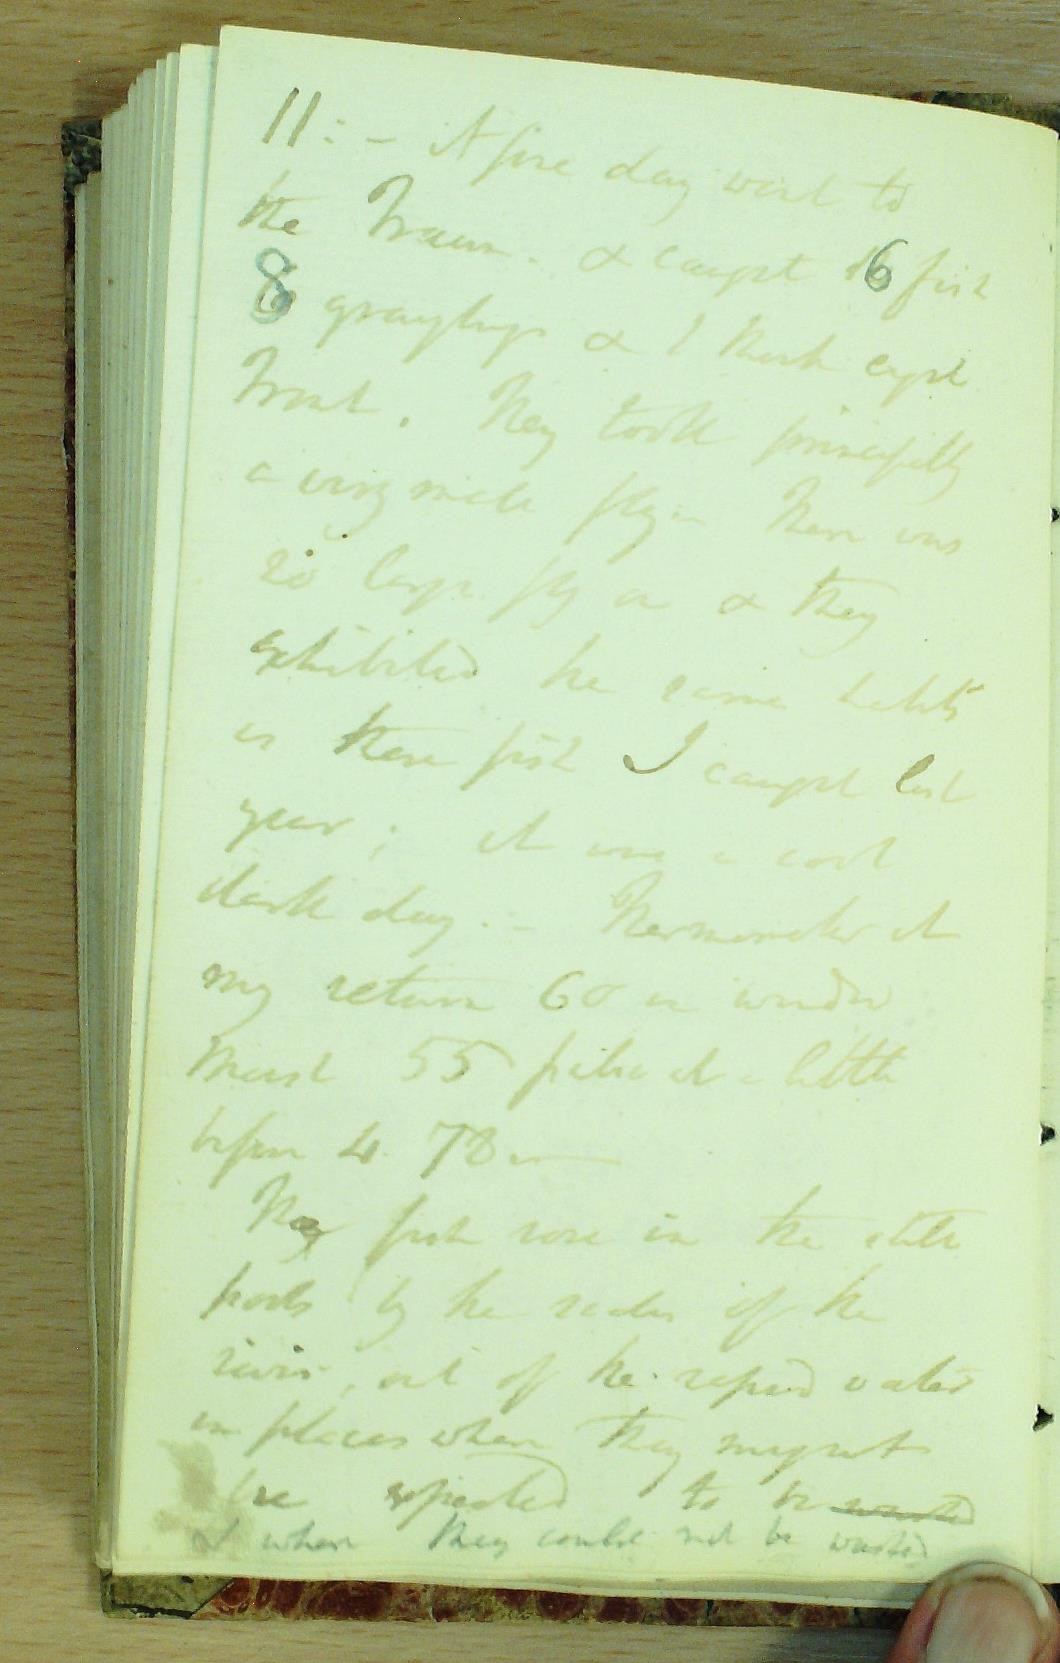 11: - A fine day went to
the Traun. & caught 16 fish
8 graylings & I think eight
Trout. They took principally
a very small fly - There was
no large fly on & they
exhibited the same habits
as those fish I caught last
year; it was a cool
dark day. - Thermometer at
my return 60 in window
55 at a little
before 4. 78 -
The fish rose in the still
pools by the sides of the
river, out of the rapid water
in places where they might
be expected to be wasted
& where they could not be wasted